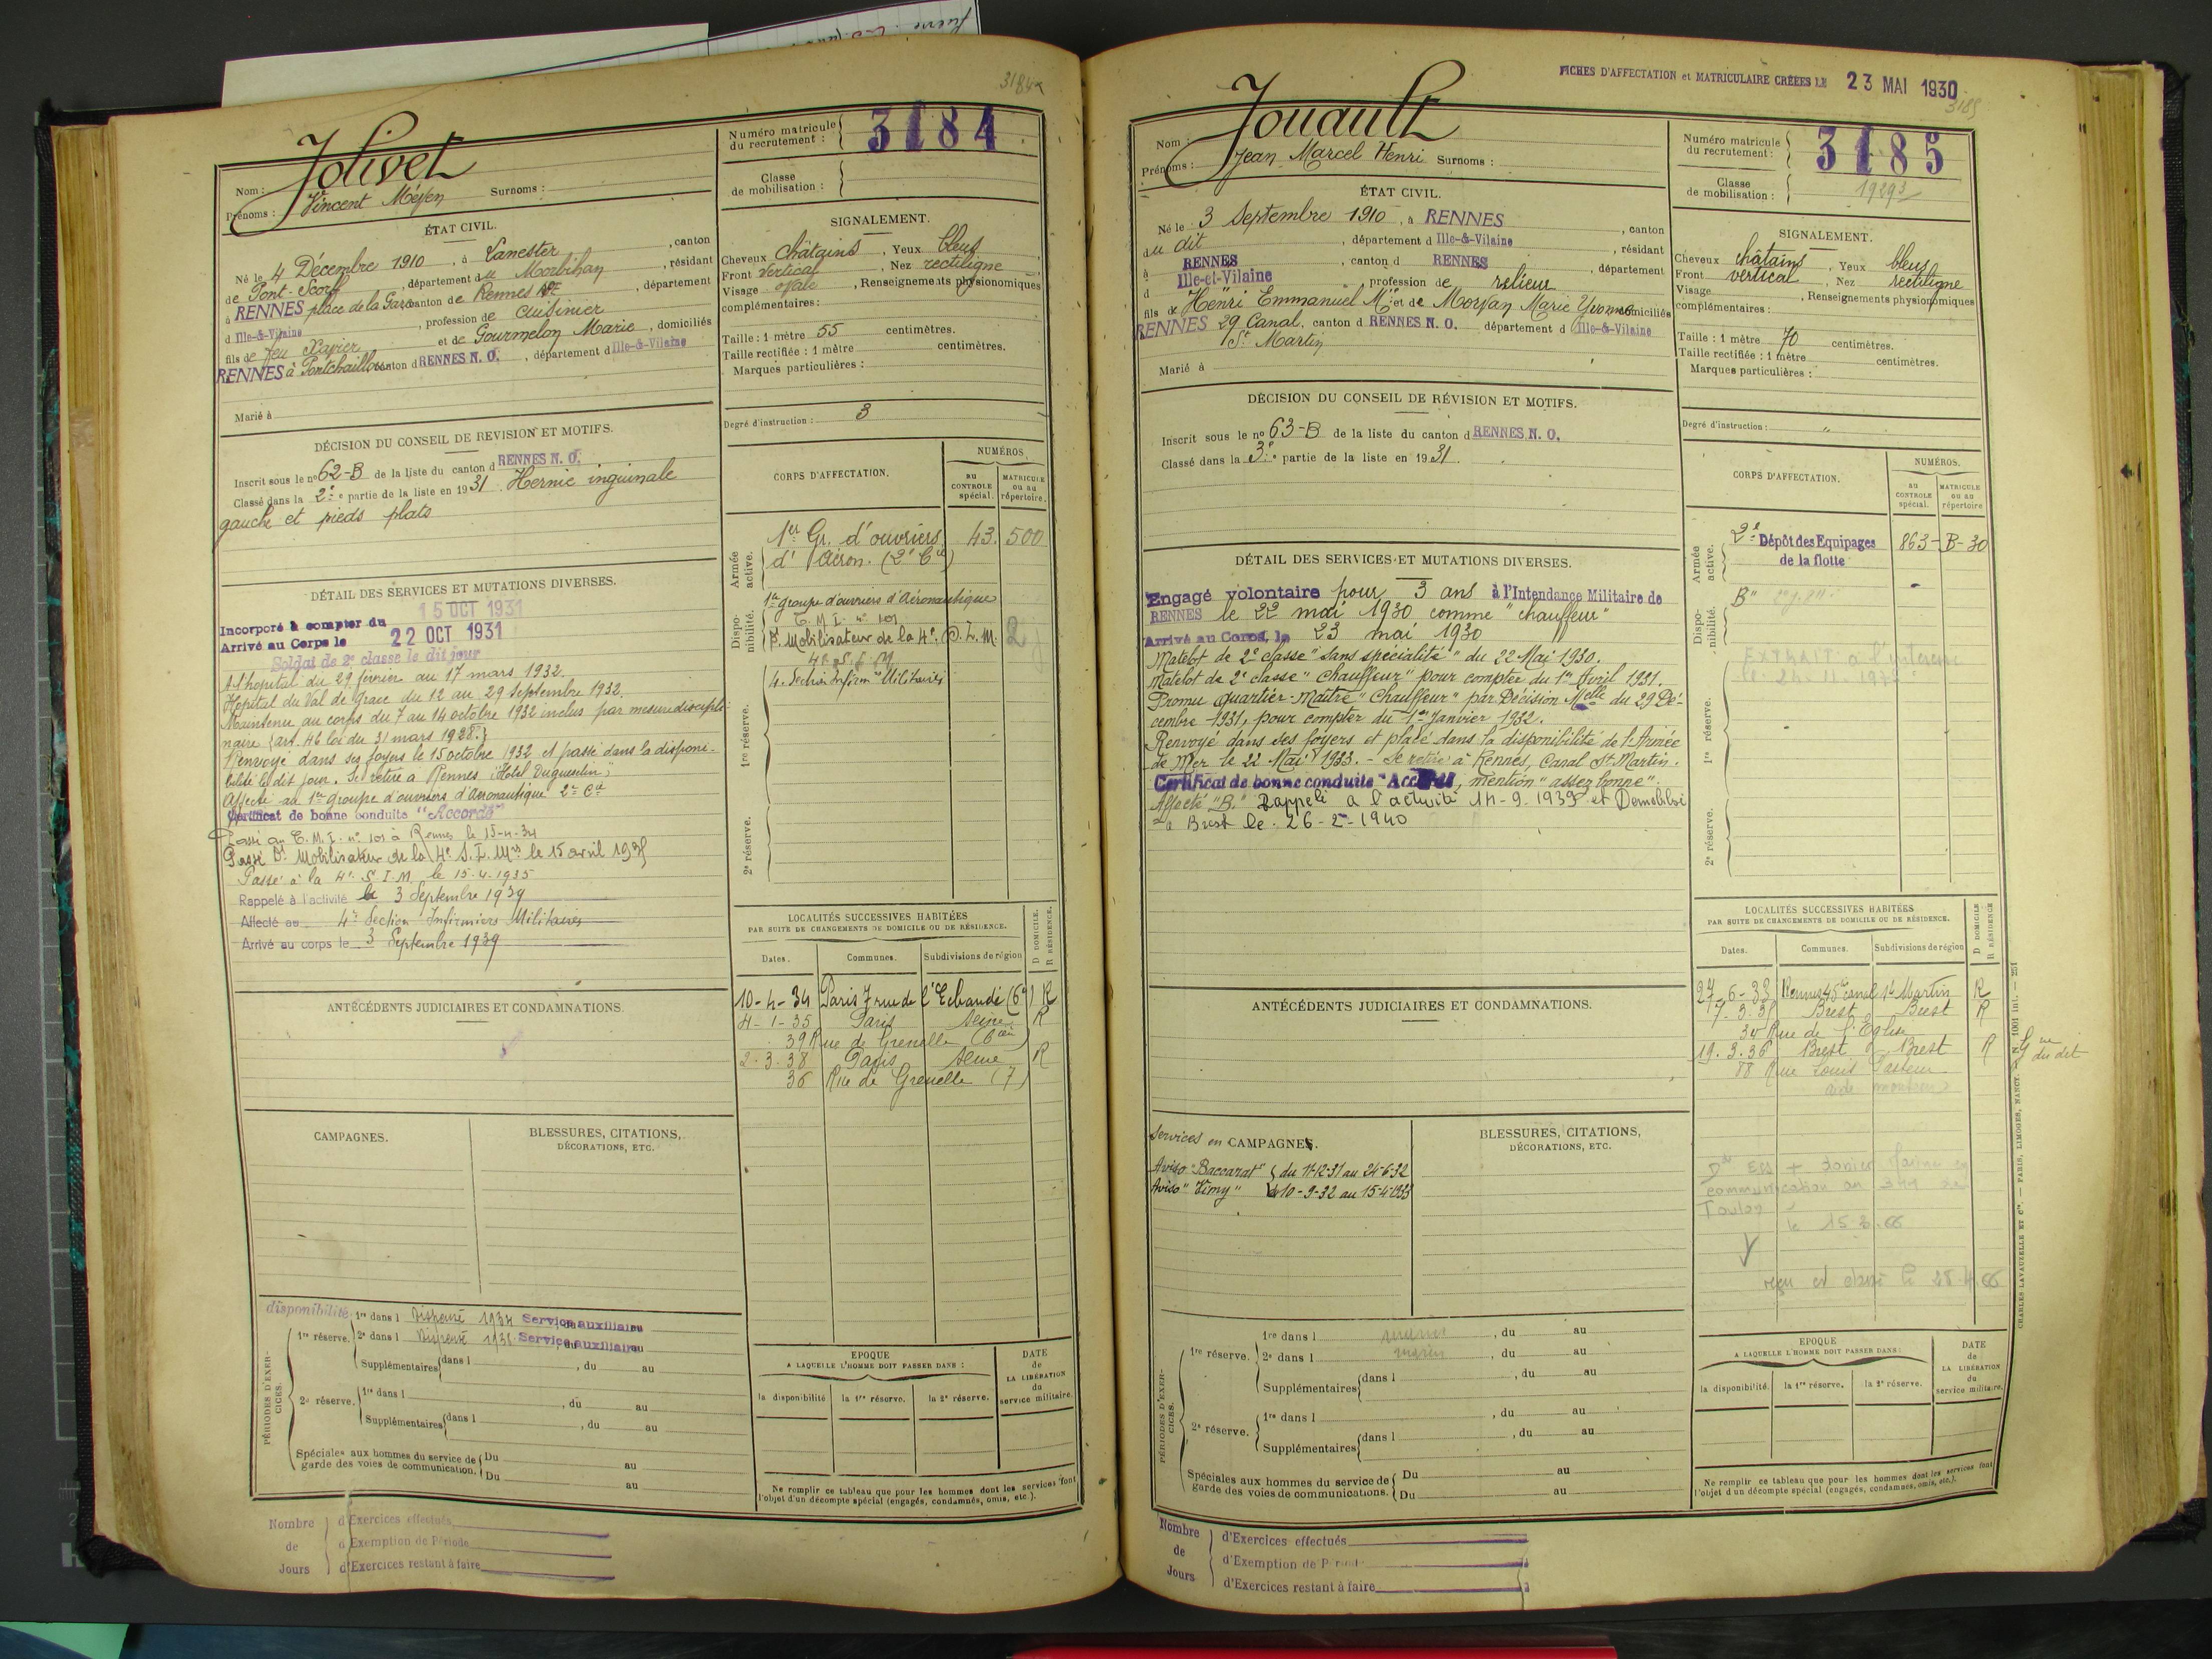 3184
Jolivet
Nom :
Prénoms : Vincent Méfen Surnoms :
Numéro matricule du recrutement : 3184
Classe de mobilisation :
ÉTAT CIVIL.
Né le 4 Décembre 1910, à Lanester, canton
de Pont-Scorff, département du Morbihan, résidant
à RENNES place de la Gare canton de Rennes, département
d Ille-&-Vilaine, profession de Cuisinier
fils de feu Xavier et de Gourmelon Marie, domiciliés
RENNES à Pontchaillou canton d RENNES N. O., département d Ille-&-Vilaine
Marié à
SIGNALEMENT.
Cheveux châtains, Yeux bleus
Front vertical, Nez rectiligne
Visage ovale, Renseignements physionomiques
complémentaires :
Taille : 1 mètre 55 centimètres.
Taille rectifiée : 1 mètre centimètres.
Marques particulières :
Degré d'instruction : 3
DÉCISION DU CONSEIL DE REVISION ET MOTIFS.
Inscrit sous le nº 62-B de la liste du canton d RENNES N. O.
Classé dans la 2e partie de la liste en 1931. Hernie inguinale
gauche et pieds plats
DÉTAIL DES SERVICES ET MUTATIONS DIVERSES.
Incorporé à compter du 15 OCT 1931
Arrivé au Corps le 22 OCT 1931
Soldat de 2e classe le dit jour
A l'hopital du 29 février au 17 mars 1932.
Hopital du Val de Grace du 12 au 29 Septembre 1932.
Maintenu au corps du 7 au 14 octobre 1932 inclus par mesure discipli-
naire (art. 46 loi du 31 mars 1928.)
Renvoyé dans ses foyers le 15 octobre 1932 et passé dans la disponi-
bilité le dit jour. Se retire à Rennes "Hôtel Duguesclin"
Affecté au 1er groupe d'ouvriers d'aéronautique 2e Cie
Certificat de bonne conduite "Accordé"
Passé au C. M. I. nº 101 à Rennes le 15-4-34
Passé Dt Mobilisateur de la 4e S. I. Mres le 15 avril 1935
Passé à la 4e S. I. M le 15-4-1935
Rappelé à l'activité le 3 Septembre 1939
Affecté au 4e Section Infirmiers Militaires
Arrivé au corps le 3 Septembre 1939
CORPS D'AFFECTATION.
NUMÉROS
au CONTROLE spécial.
MATRICULE ou au répertoire.
Armée active.
1er Gr. d'ouvriers 43. 500
d'Aéron. (2e Cie)
Disponibilité.
1er groupe d'ouvriers d'Aéronautique
C. M. I. nº 101
Dt Mobilisateur de la 4e S. I. M.
4e S. I. M
4e Section Infirm. Militaires
1re réserve.
2e réserve.
LOCALITÉS SUCCESSIVES HABITÉES
PAR SUITE DE CHANGEMENTS DE DOMICILE OU DE RÉSIDENCE.
D DOMICILE.
R RÉSIDENCE.
Dates. Communes. Subdivisions de région
10-4-34 Paris 7 rue de l'Echaudé (6e) R
4-1-35 Paris Seine R
39 Rue de Grenelle (6e)
2-3-38 Paris Seine R
36 Rue de Grenelle (7)
ANTÉCÉDENTS JUDICIAIRES ET CONDAMNATIONS.
CAMPAGNES.
BLESSURES, CITATIONS,
DÉCORATIONS, ETC.
PÉRIODES D'EXERCICES.
disponibilité 1re dans l Dispensé 1934 Service auxiliaire
1re réserve. 2e dans l Dispensé 1936 Service auxiliaire
Supplémentaires dans l , du au
2e réserve. 1re dans l , du au
Supplémentaires dans l , du au
Spéciales aux hommes du service de garde des voies de communication. Du au
Du au
EPOQUE
A LAQUELLE L'HOMME DOIT PASSER DANS :
la disponibilité la 1re réserve. la 2e réserve.
DATE de LA LIBÉRATION du service militaire.
Ne remplir ce tableau que pour les hommes dont les services font
l'objet d'un décompte spécial (engagés, condamnés, omis, etc.).
Nombre de Jours
d'Exercices effectués
d'Exemption de Période
d'Exercices restant à faire
FICHES D'AFFECTATION et MATRICULAIRE CRÉÉES LE 23 MAI 1930
3185
Jouault
Nom :
Prénoms : Jean Marcel Henri Surnoms :
Numéro matricule du recrutement : 3185
Classe de mobilisation : 1929
ÉTAT CIVIL.
Né le 3 Septembre 1910, à RENNES, canton
du dit, département d Ille-&-Vilaine, résidant
à RENNES, canton d RENNES, département
d Ille-et-Vilaine, profession de relieur
fils de Henri Emmanuel Mie et de Morvan Marie Yvonne domiciliés
RENNES 29 Canal, canton d RENNES N. O. département d Ille-&-Vilaine
St Martin
Marié à
SIGNALEMENT.
Cheveux châtains, Yeux bleus
Front vertical, Nez rectiligne
Visage, Renseignements physionomiques
complémentaires :
Taille : 1 mètre 70 centimètres.
Taille rectifiée : 1 mètre centimètres.
Marques particulières :
Degré d'instruction : "
DÉCISION DU CONSEIL DE RÉVISION ET MOTIFS.
Inscrit sous le nº 63-B de la liste du canton d RENNES N. O.
Classé dans la 3e partie de la liste en 1931.
DÉTAIL DES SERVICES ET MUTATIONS DIVERSES.
Engagé volontaire pour 3 ans à l'Intendance Militaire de
RENNES le 22 mai 1930 comme "chauffeur"
Arrivé au Corps, le 23 mai 1930
Matelot de 2e classe "sans spécialité" du 22 Mai 1930.
Matelot de 2e classe "Chauffeur" pour compter du 1er Avril 1931.
Promu Quartier-Maître "Chauffeur" par Décision Melle du 29 Dé-
cembre 1931, pour compter du 1er Janvier 1932.
Renvoyé dans ses foyers et placé dans la disponibilité de l'Armée
de Mer le 22 Mai 1933. - Se retire à Rennes, Canal St Martin.
Certificat de bonne conduite "Accordé", mention "assez bonne".
Affecté "B." Rappelé à l'activité 14-9-1939 et Démobilisé
à Brest le 26-2-1940
CORPS D'AFFECTATION.
NUMÉROS.
au CONTROLE spécial.
MATRICULE ou au répertoire
Armée active.
2e Dépôt des Equipages 863-B-30
de la flotte
Disponibilité.
B"
EXTRAIT
1re réserve.
2e réserve.
LOCALITÉS SUCCESSIVES HABITÉES
PAR SUITE DE CHANGEMENTS DE DOMICILE OU DE RÉSIDENCE.
D DOMICILE
R RÉSIDENCE
Dates. Communes. Subdivisions de région
27-6-33 Rennes 45 canal St Martin R
7.3.35 Brest Brest R
34 Rue de l'Eglise
19.3.36 Brest Brest R
88 Rue Louis Pasteur
du dit
ANTÉCÉDENTS JUDICIAIRES ET CONDAMNATIONS.
Services en CAMPAGNES.
Aviso "Baccarat" du 1-12-31 au 24-6-32
Aviso "Vimy" du 10-9-32 au 15-4-1933
BLESSURES, CITATIONS,
DÉCORATIONS, ETC.
communication au
Toulon
le 15.3.66
reçu et classé le 28.4.66
CHARLES LAVAUZELLE ET Cie. — PARIS, LIMOGES, NANCY.
PÉRIODES D'EXERCICES.
1re réserve. 1re dans l marine, du au
2e dans l marin, du au
Supplémentaires dans l , du au
2e réserve. 1re dans l , du au
Supplémentaires dans l , du au
Spéciales aux hommes du service de garde des voies de communications. Du au
Du au
EPOQUE
A LAQUELLE L'HOMME DOIT PASSER DANS :
la disponibilité. la 1re réserve. la 2e réserve.
DATE de LA LIBÉRATION du service militaire.
Ne remplir ce tableau que pour les hommes dont les services font
l'objet d'un décompte spécial (engagés, condamnés, omis, etc.).
Nombre de Jours
d'Exercices effectués
d'Exemption de Période
d'Exercices restant à faire